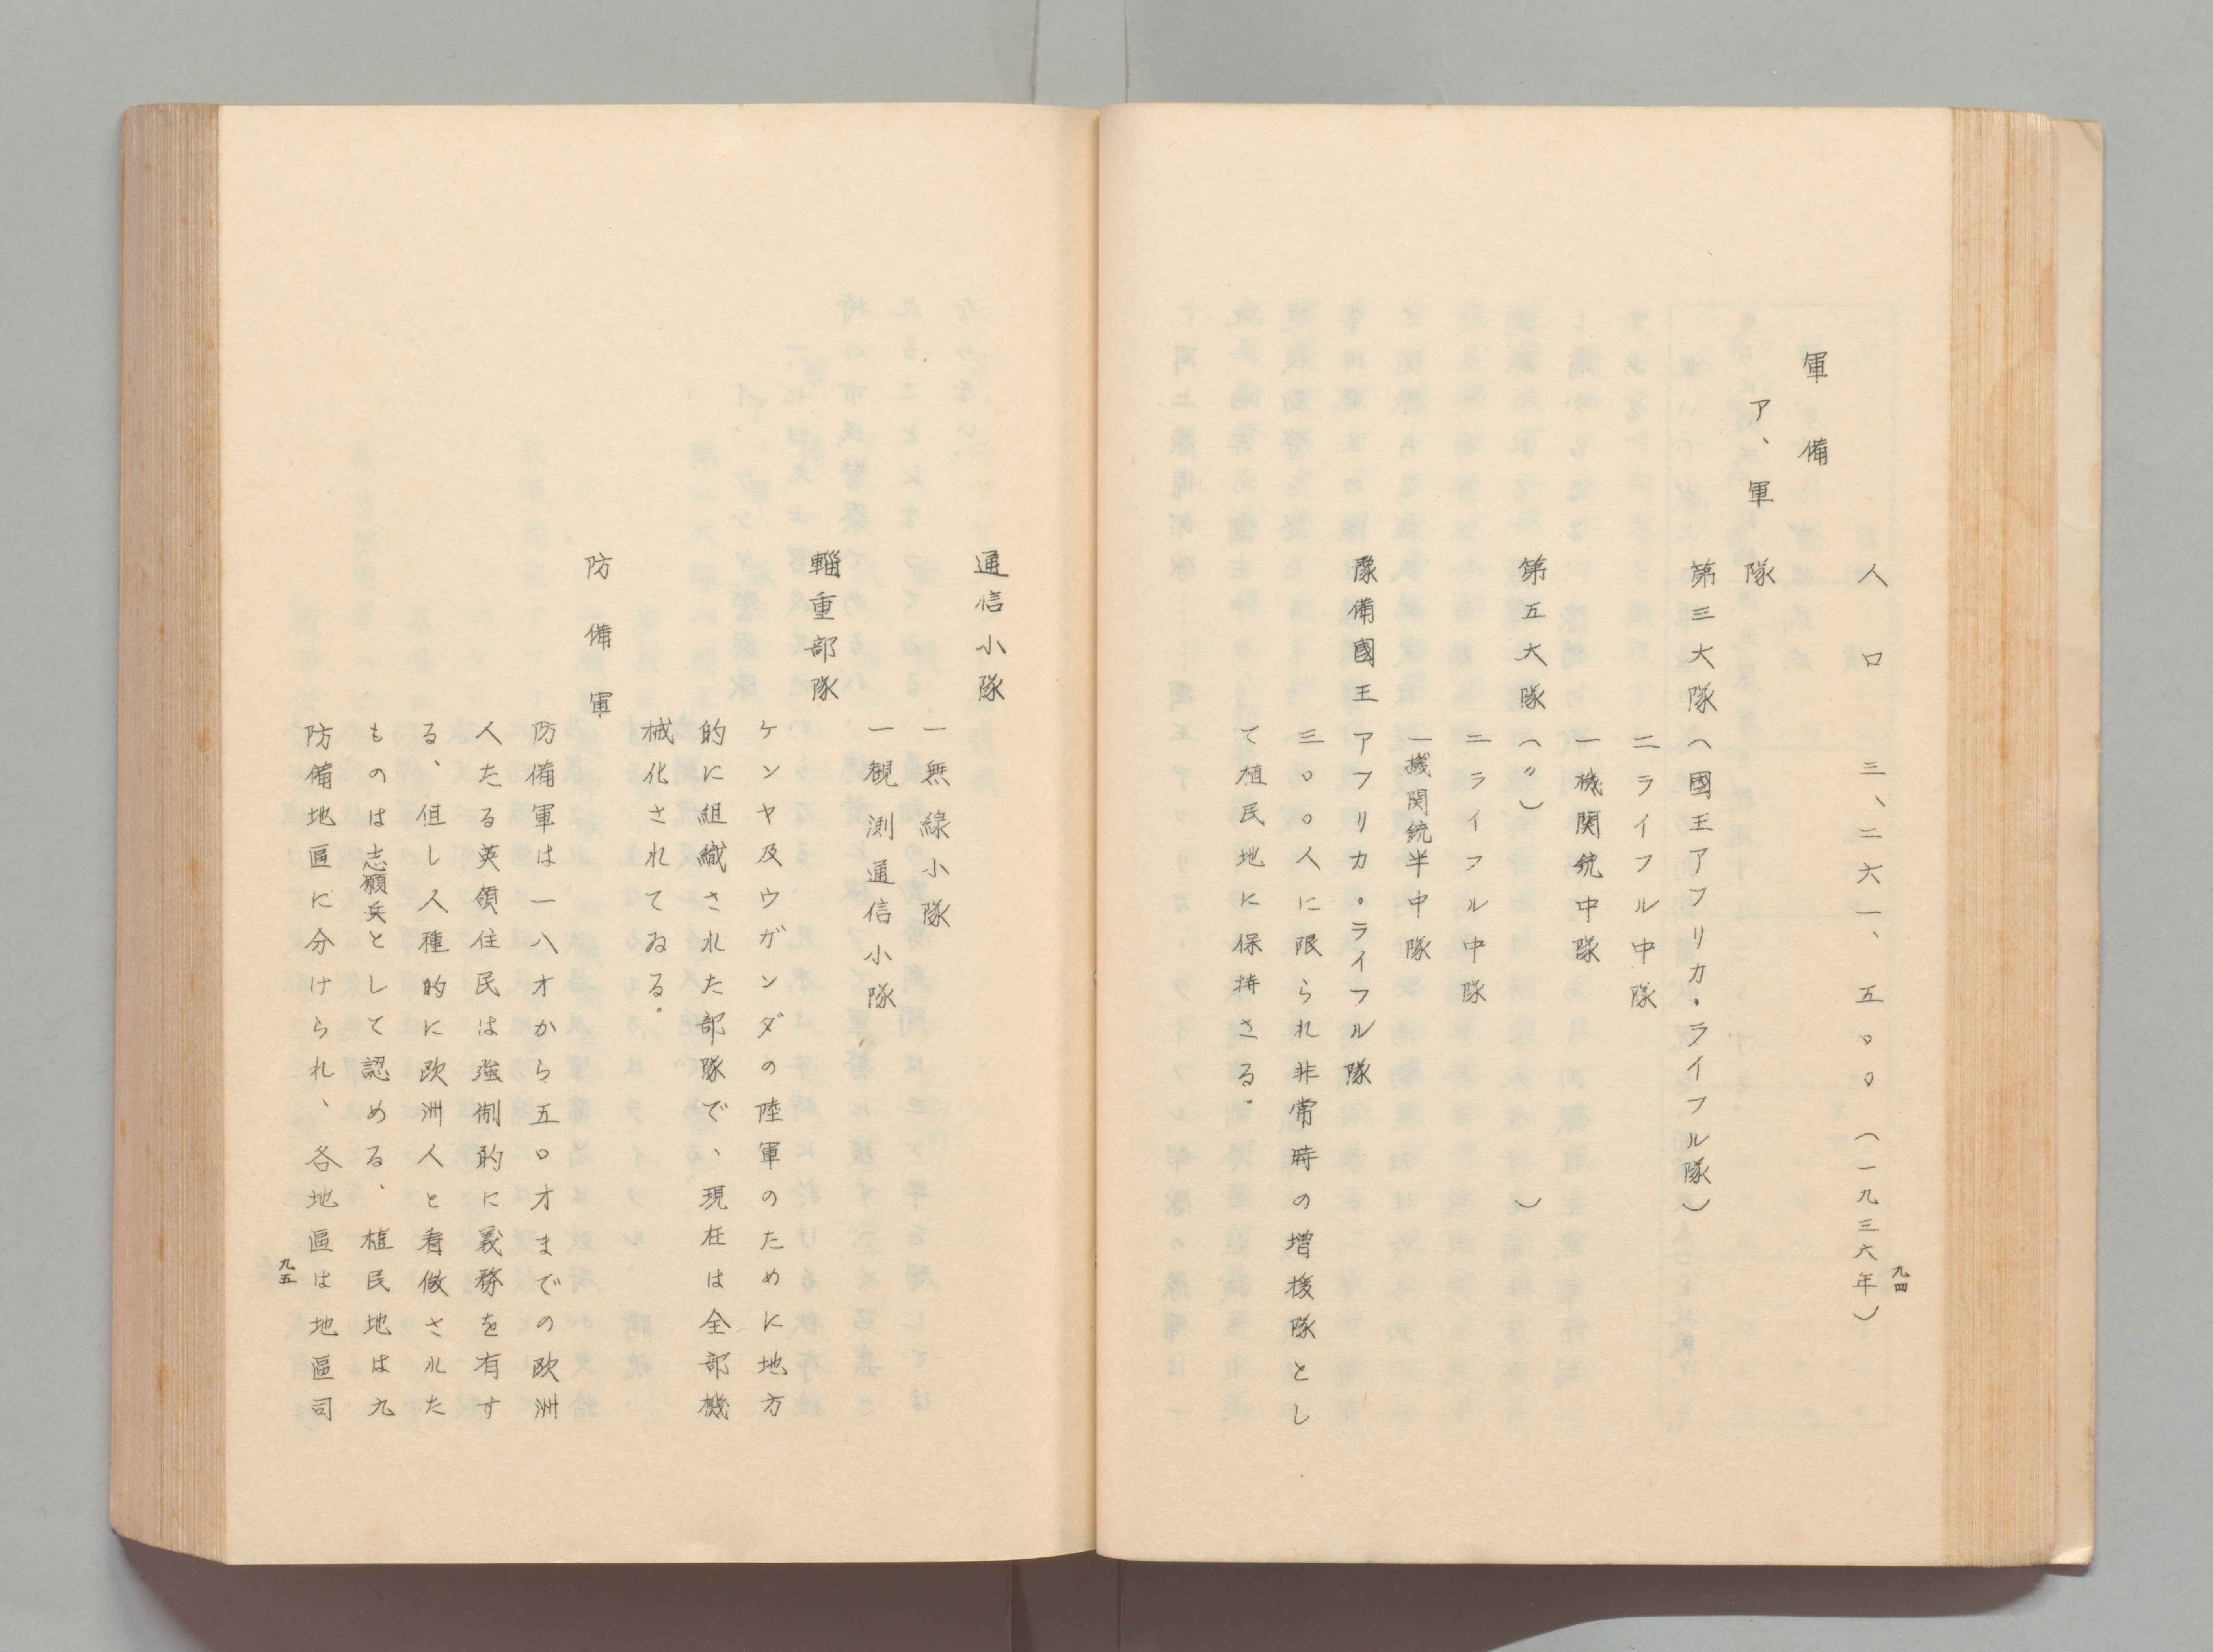 人口 三、二六一、五〇〇(一九三六年)
軍備
ア、軍隊
第三大隊(國王アフリカ・ライフル隊)
二ライフル中隊
一機関銃中隊
第五大隊(〃)
二ライフル中隊
一機関銃半中隊
豫備國王アフリカ・ライフル隊
三〇〇人に限られ非常時の増援隊とし
て植民地に保持さる。
九四
通信小隊
一無線小隊
一観測通信小隊
輜重部隊
ケンヤ及ウガンダの陸軍のために地方
的に組織された部隊で、現在は全部機
械化されてゐる。
防備軍
防備軍は一八才から五〇才までの欧洲
人たる英領住民は強制的に義務を有す
る、但し人種的に欧洲人と看做された
ものは志願兵として認める、植民地は九
防備地區に分けられ、各地區は地區司
九五